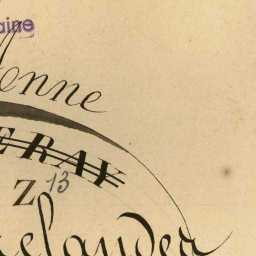 aine
enne
ERAY
Z 13
elander